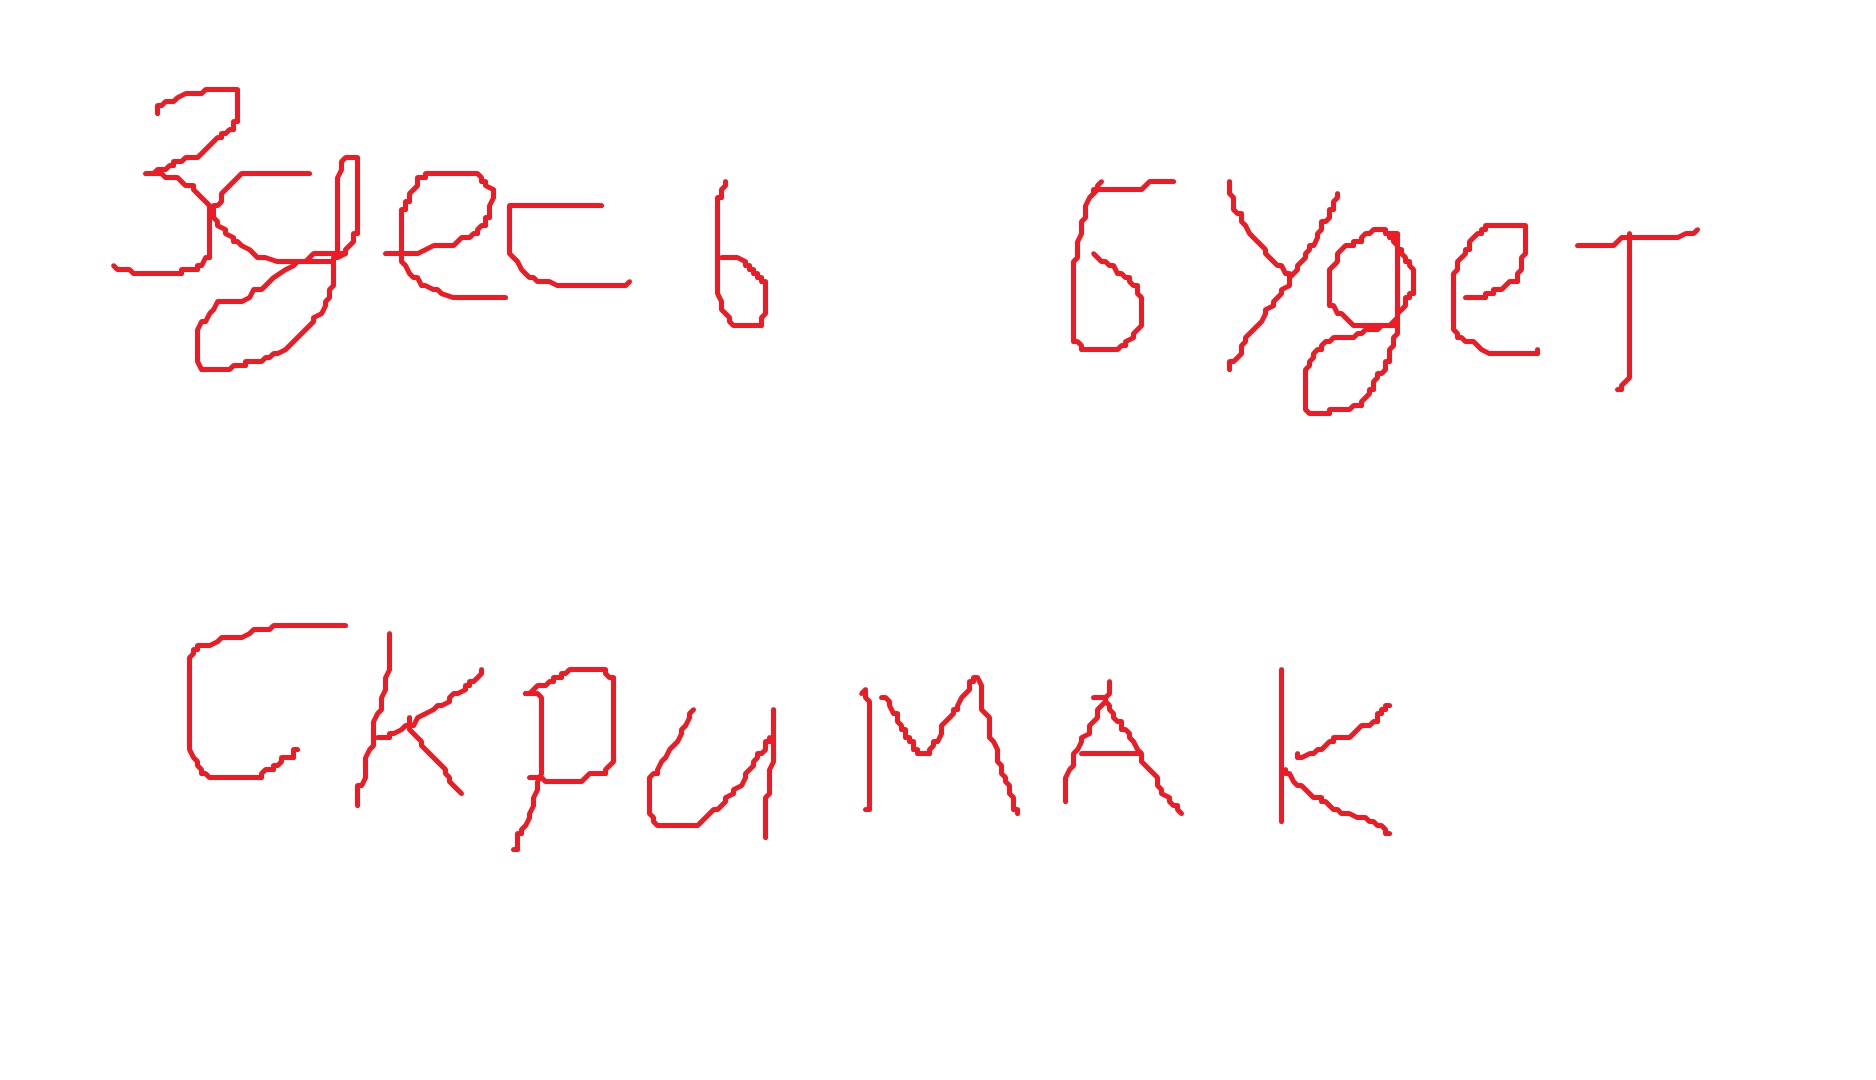 Здесь будет
Скримак